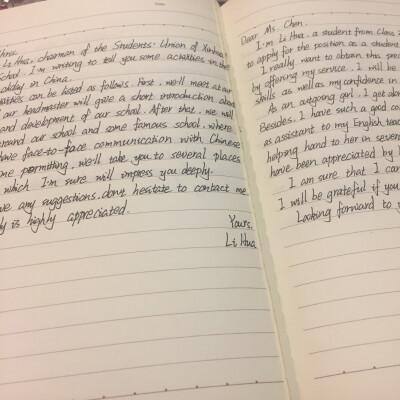 Chris.
Li Hua, chairman of the Students' Union of Xinhua
School. I'm writing to tell you some activities in the
holiday in China.
activities can be listed as follows. First, we'll meet at our
our headmaster will give a short introduction about
and development of our school. After that, we will
around our school and some famous school, where
have face-to-face communication with Chinese
time permitting, we'll take you to several places
which I'm sure will impress you deeply.
have any suggestions, don't hesitate to contact me.
is highly appreciated.
Yours,
Li Hua
Dear Ms. Chen,
I'm Li Hua, a student from Class
to apply for the position as a student
I really want to obtain this
by offering my service. I will be
skills as well as my confidence in
As an outgoing girl, I get
Besides, I have such a good
as assistant to my English
helping hand to her in
have been appreciated by
I am sure that I can
I will be grateful if you
Looking forward to